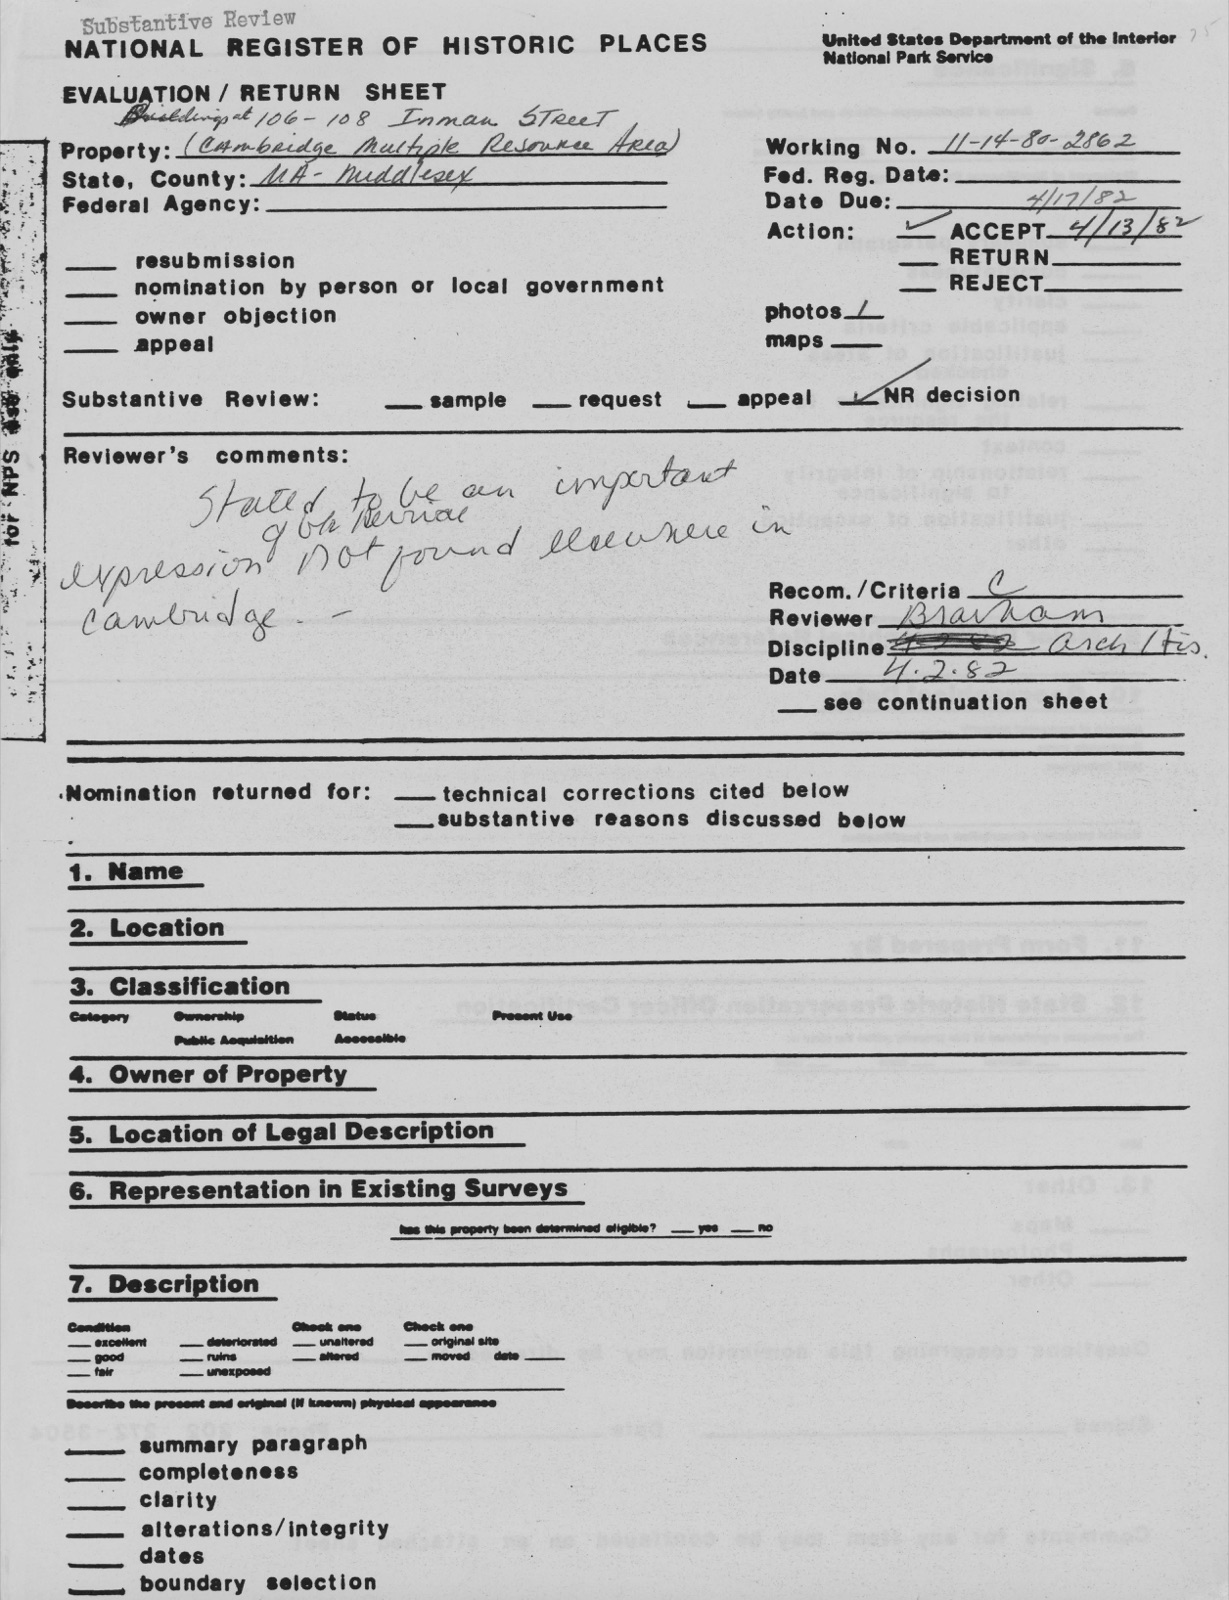 Substantive Review
NATIONAL REGISTER OF HISTORIC PLACES
United States Department of the Interior
National Park Service
EVALUATION / RETURN SHEET
Buildings at 106-108 Inman Street
Property: (Cambridge Multiple Resource Area)
State, County: MA- Middlesex
Federal Agency:
Working No. 11-14-80-2862
Fed. Reg. Date:
Date Due: 4/17/82
Action: ✓ ACCEPT 4/13/82
RETURN
REJECT
resubmission
nomination by person or local government
owner objection
appeal
photos /
maps
for NPS use only
Substantive Review: sample request appeal ✓ NR decision
Reviewer's comments:
Stated to be an important
of
expression not found elsewhere in
Cambridge. -
Recom./Criteria C
Reviewer Branham
Discipline Arch His.
Date 4.2.82
see continuation sheet
Nomination returned for: technical corrections cited below
substantive reasons discussed below
1. Name
2. Location
3. Classification
Category Ownership Status Present Use
Public Acquisition Accessible
4. Owner of Property
5. Location of Legal Description
6. Representation in Existing Surveys
Has this property been determined eligible? yes no
7. Description
Condition Check one Check one
excellent deteriorated unaltered original site
good ruins altered moved date
fair unexposed
Describe the present and original (if known) physical appearance
summary paragraph
completeness
clarity
alterations/integrity
dates
boundary selection